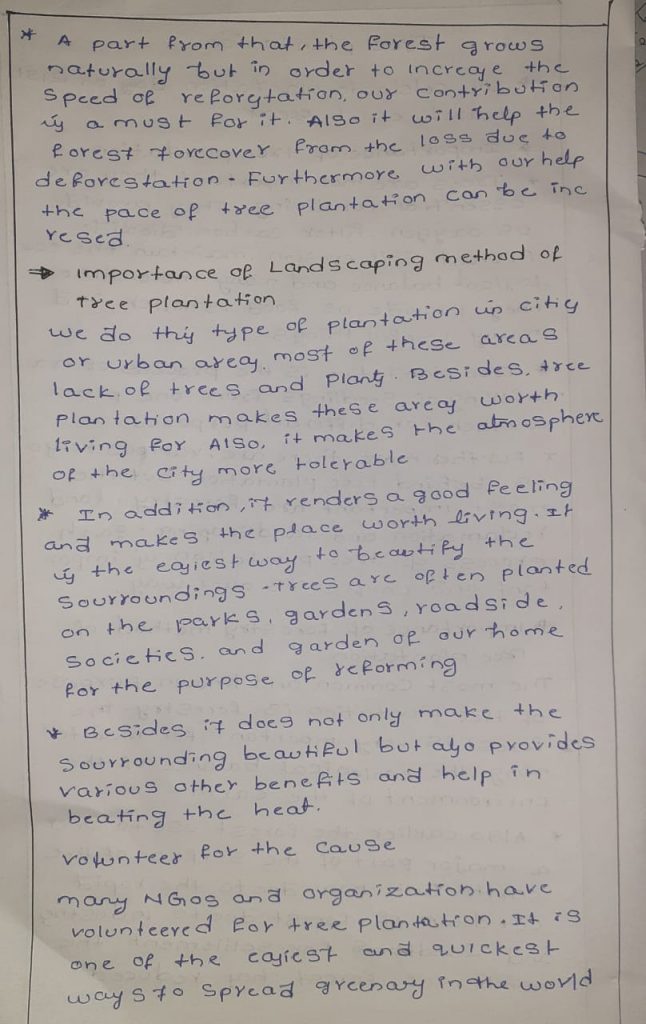 * A part from that, the Forest grows
naturally but in order to increase the
speed of reforstation, our contribution
is a must for it. Also it will help the
forest torecover from the loss due to
deforestation. Furthermore with our help
the pace of tree plantation can be inc
resed.
⇒ importance of Landscaping method of
tree plantation
we do this type of plantation in citiy
or urban areas. most of these areas
lack of trees and plants. Besides, tree
plantation makes these areas worth
living for Also, it makes the atmosphere
of the city more tolerable
* In addition, it renders a good feeling
and makes the place worth living. It
is the easiest way to beautify the
sourroundings. Trees are often planted
on the parks, gardens, roadside,
societies. and garden of our home
for the purpose of reforming
* Besides it does not only make the
sourrounding beautiful but also provides
various other benefits and help in
beating the heat.
volunteer for the cause
many NGOs and organization have
volunteered for tree plantation. It is
one of the easiest and quickest
ways to spread greenary in the world